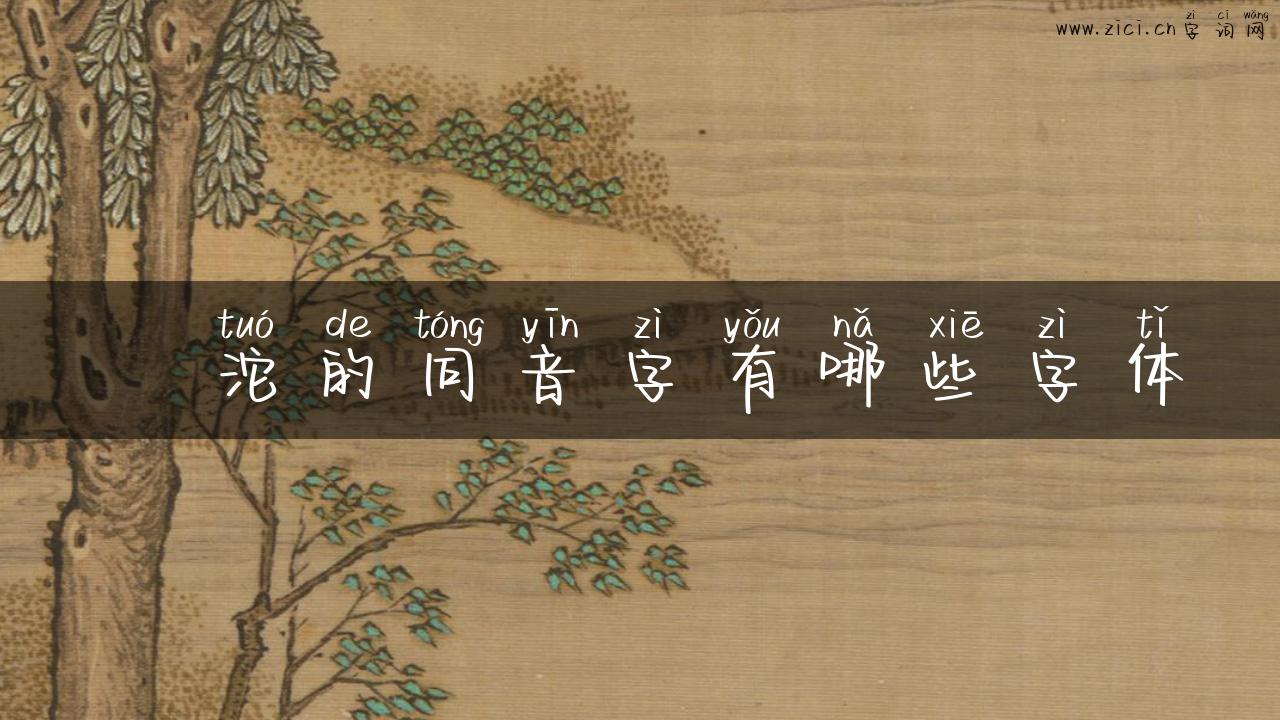 zì cí wǎng
www.zici.cn 字词网
tuó de tóng yīn zì yǒu nǎ xiē zì tǐ
沱的同音字有哪些字体